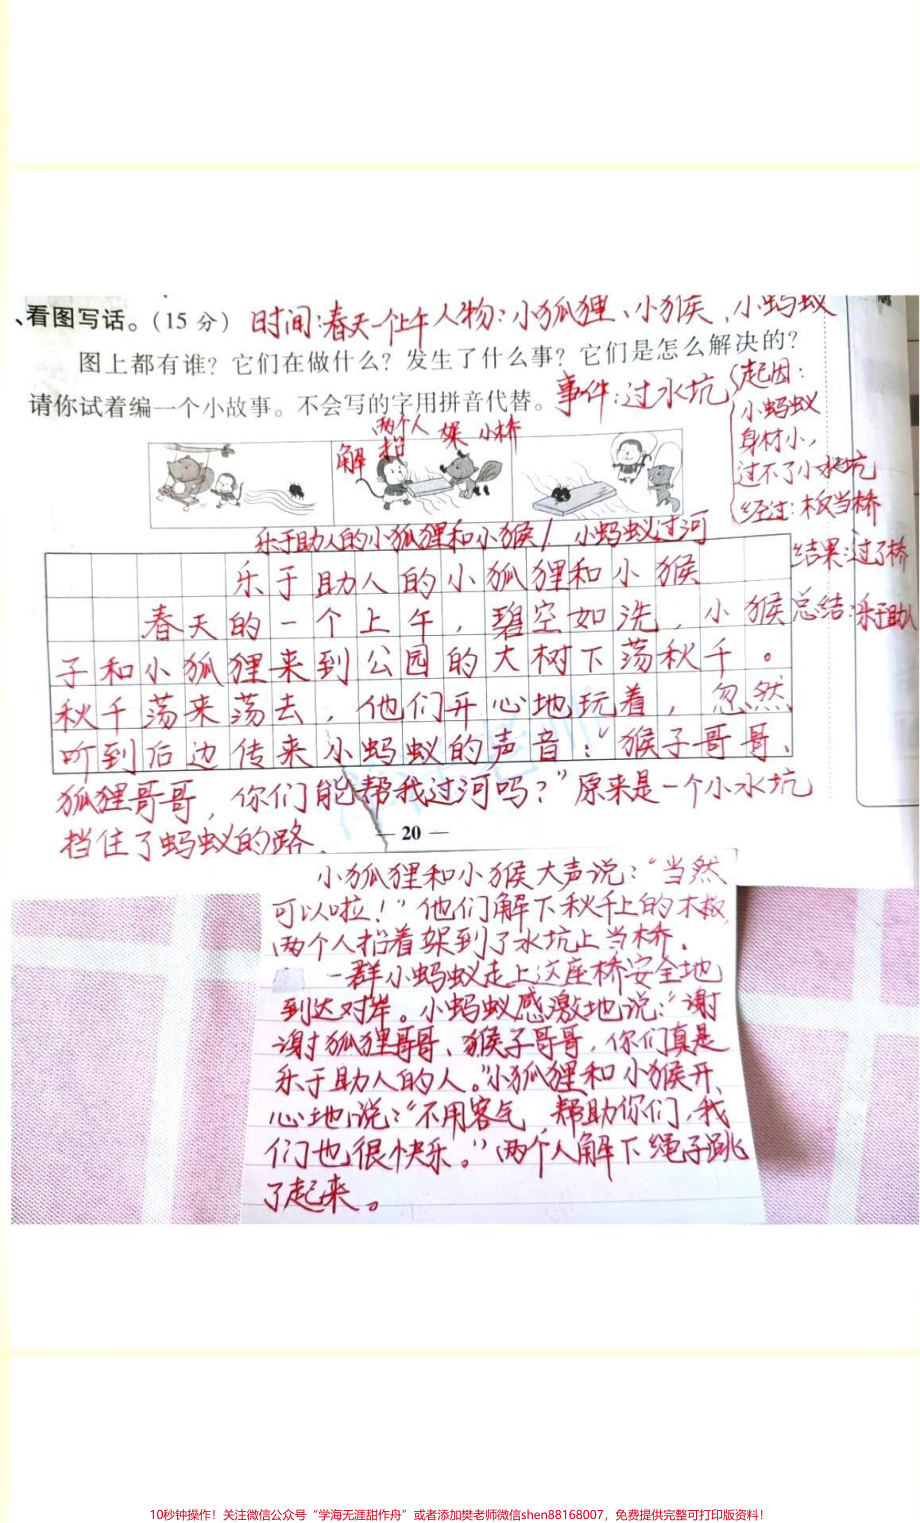 、看图写话。(15 分) 时间:春天一个上午 人物:小狐狸、小猴、小蚂蚁
图上都有谁?它们在做什么?发生了什么事?它们是怎么解决的?
请你试着编一个小故事。不会写的字用拼音代替。 事件:过水坑
起因:
小蚂蚁
身材小,
过不了小水坑
经过:木板当桥
结果:过了桥
总结:乐于助人
两个人
解 抬 架 小桥
乐于助人的小狐狸和小猴/小蚂蚁过河
乐于助人的小狐狸和小猴
春天的一个上午,碧空如洗,小猴
子和小狐狸来到公园的大树下荡秋千。
秋千荡来荡去,他们开心地玩着,忽然
听到后边传来小蚂蚁的声音:“猴子哥哥、
狐狸哥哥,你们能帮我过河吗?”原来是一个小水坑
挡住了蚂蚁的路.
— 20 —
小狐狸和小猴大声说:“当然
可以啦!”他们解下秋千上的木板,
两个人抬着架到了水坑上当桥.
一群小蚂蚁走上这座桥安全地
到达对岸。小蚂蚁感激地说:“谢
谢狐狸哥哥、猴子哥哥,你们真是
乐于助人的人。”小狐狸和小猴开
心地说:“不用客气,帮助你们,我
们也很快乐。”两个人解下绳子跳
了起来。
10秒钟操作!关注微信公众号“学海无涯甜作舟”或者添加樊老师微信shen88168007,免费提供完整可打印版资料!